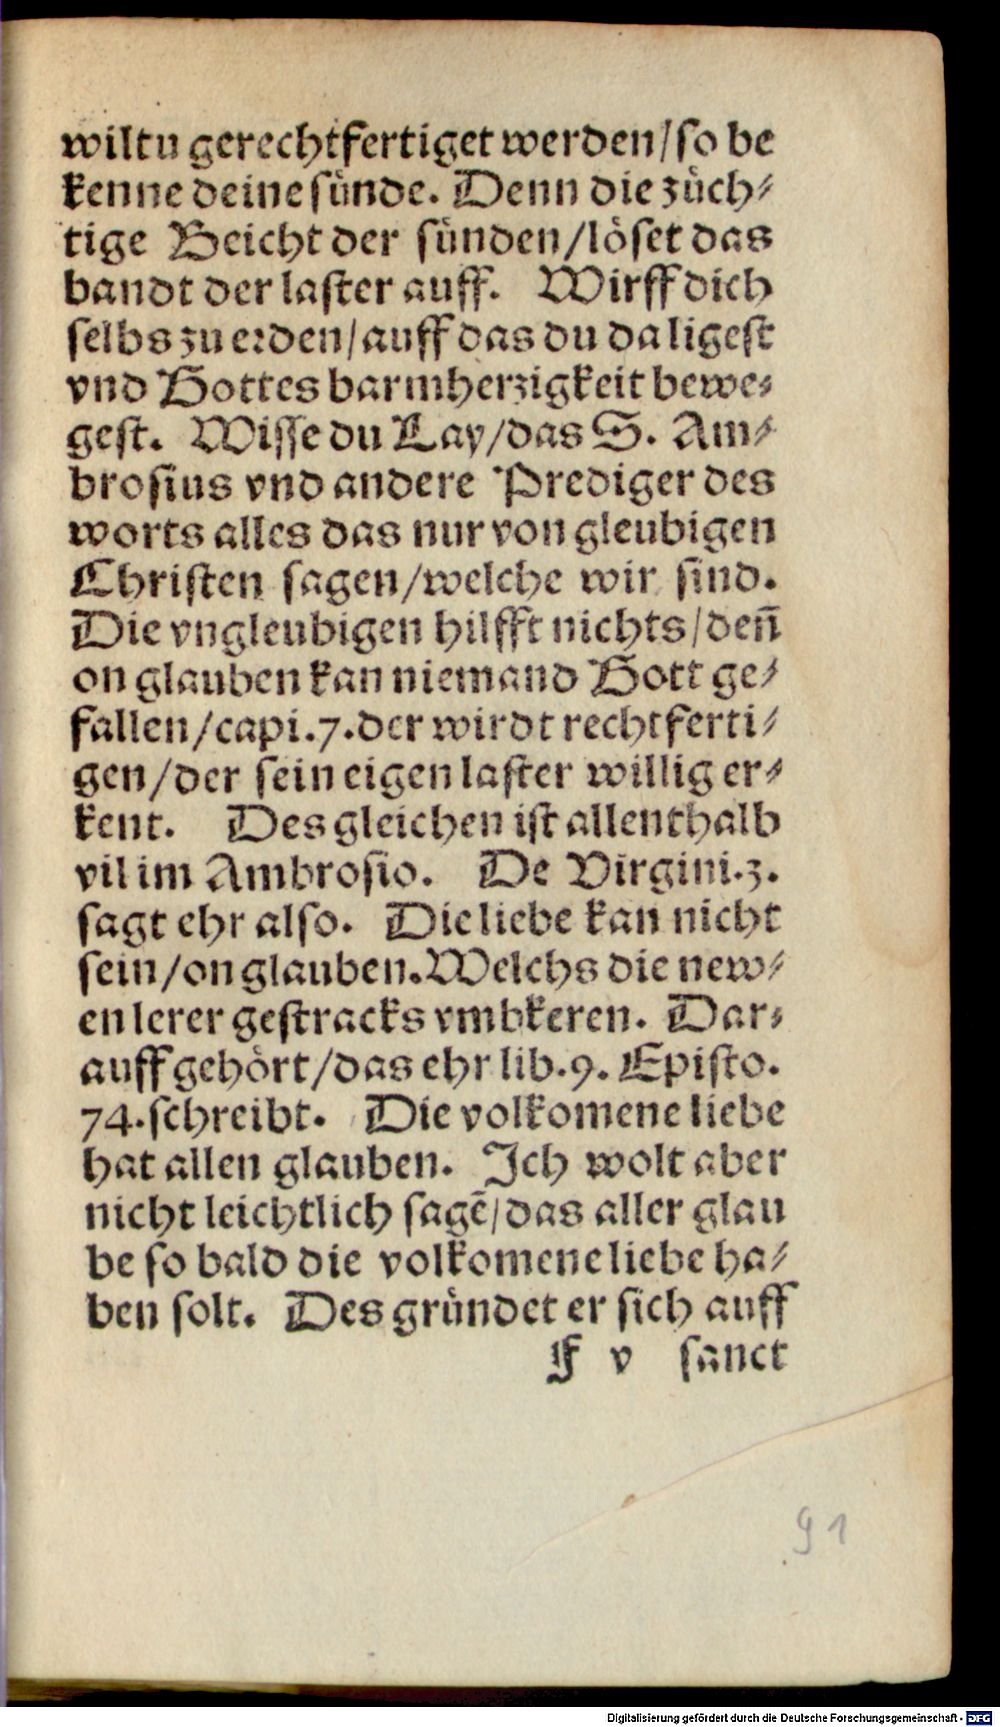 wiltu gerechtfertiget werden/so be
kenne deine sünde. Denn die züch⸗
tige Beicht der sünden/löset das
bandt der laster auff. Wirff dich
selbs zu erden/auff das du da ligest
vnd Gottes barmherzigkeit bewe⸗
gest. Wisse du Lay/das S. Am⸗
brosius vnd andere Prediger des
worts alles das nur von gleubigen
Christen sagen/welche wir sind.
Die vngleubigen hilfft nichts/deñ
on glauben kan niemand Gott ge⸗
fallen/capi.7.der wirdt rechtferti⸗
gen/der sein eigen laster willig er⸗
kent. Des gleichen ist allenthalb
vil im Ambrosio. De Virgini.3.
sagt ehr also. Die liebe kan nicht
sein/on glauben.Welchs die new⸗
en lerer gestracks vmbkeren. Dar⸗
auff gehört/das ehr lib.9. Episto.
74.schreibt. Die volkomene liebe
hat allen glauben. Ich wolt aber
nicht leichtlich sagē/das aller glau
be so bald die volkomene liebe ha⸗
ben solt. Des gründet er sich auff
F v sanct
91
Digitalisierung gefördert durch die Deutsche Forschungsgemeinschaft - DFG